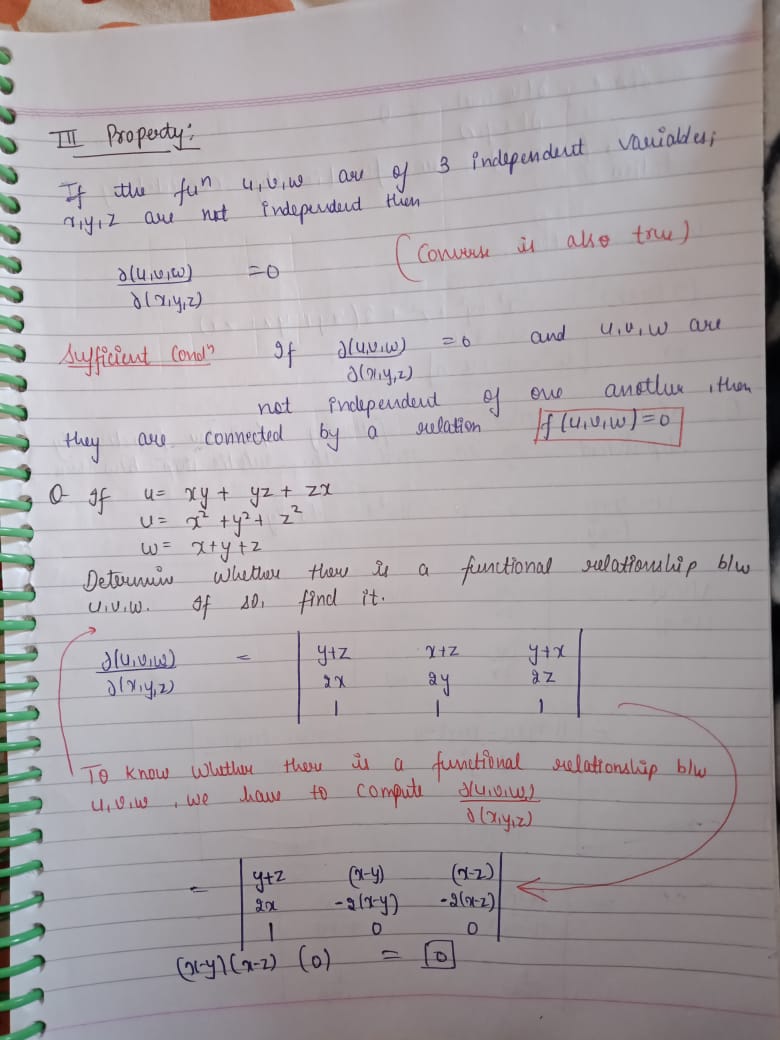 III Property:
If the fuⁿ u,v,w are of 3 independent variables,
x,y,z are not independent then
∂(u,v,w) / ∂(x,y,z) = 0 (Converse is also true)
Sufficient Condⁿ If ∂(u,v,w) / ∂(x,y,z) = 0 and u,v,w are
not independent of one another, then
they are connected by a relation f(u,v,w)=0
Q- If u= xy + yz + zx
v= x² + y² + z²
w= x+y+z
Determin whether there is a functional relationship b/w
u,v,w. If so, find it.
∂(u,v,w) / ∂(x,y,z) = | y+z x+z y+x |
| 2x 2y 2z |
| 1 1 1 |
To know whether there is a functional relationship b/w
u,v,w, we have to compute ∂(u,v,w) / ∂(x,y,z)
= | y+z (x-y) (x-z) |
| 2x -2(x-y) -2(x-z) |
| 1 0 0 |
(x-y)(x-z) (0) = 0